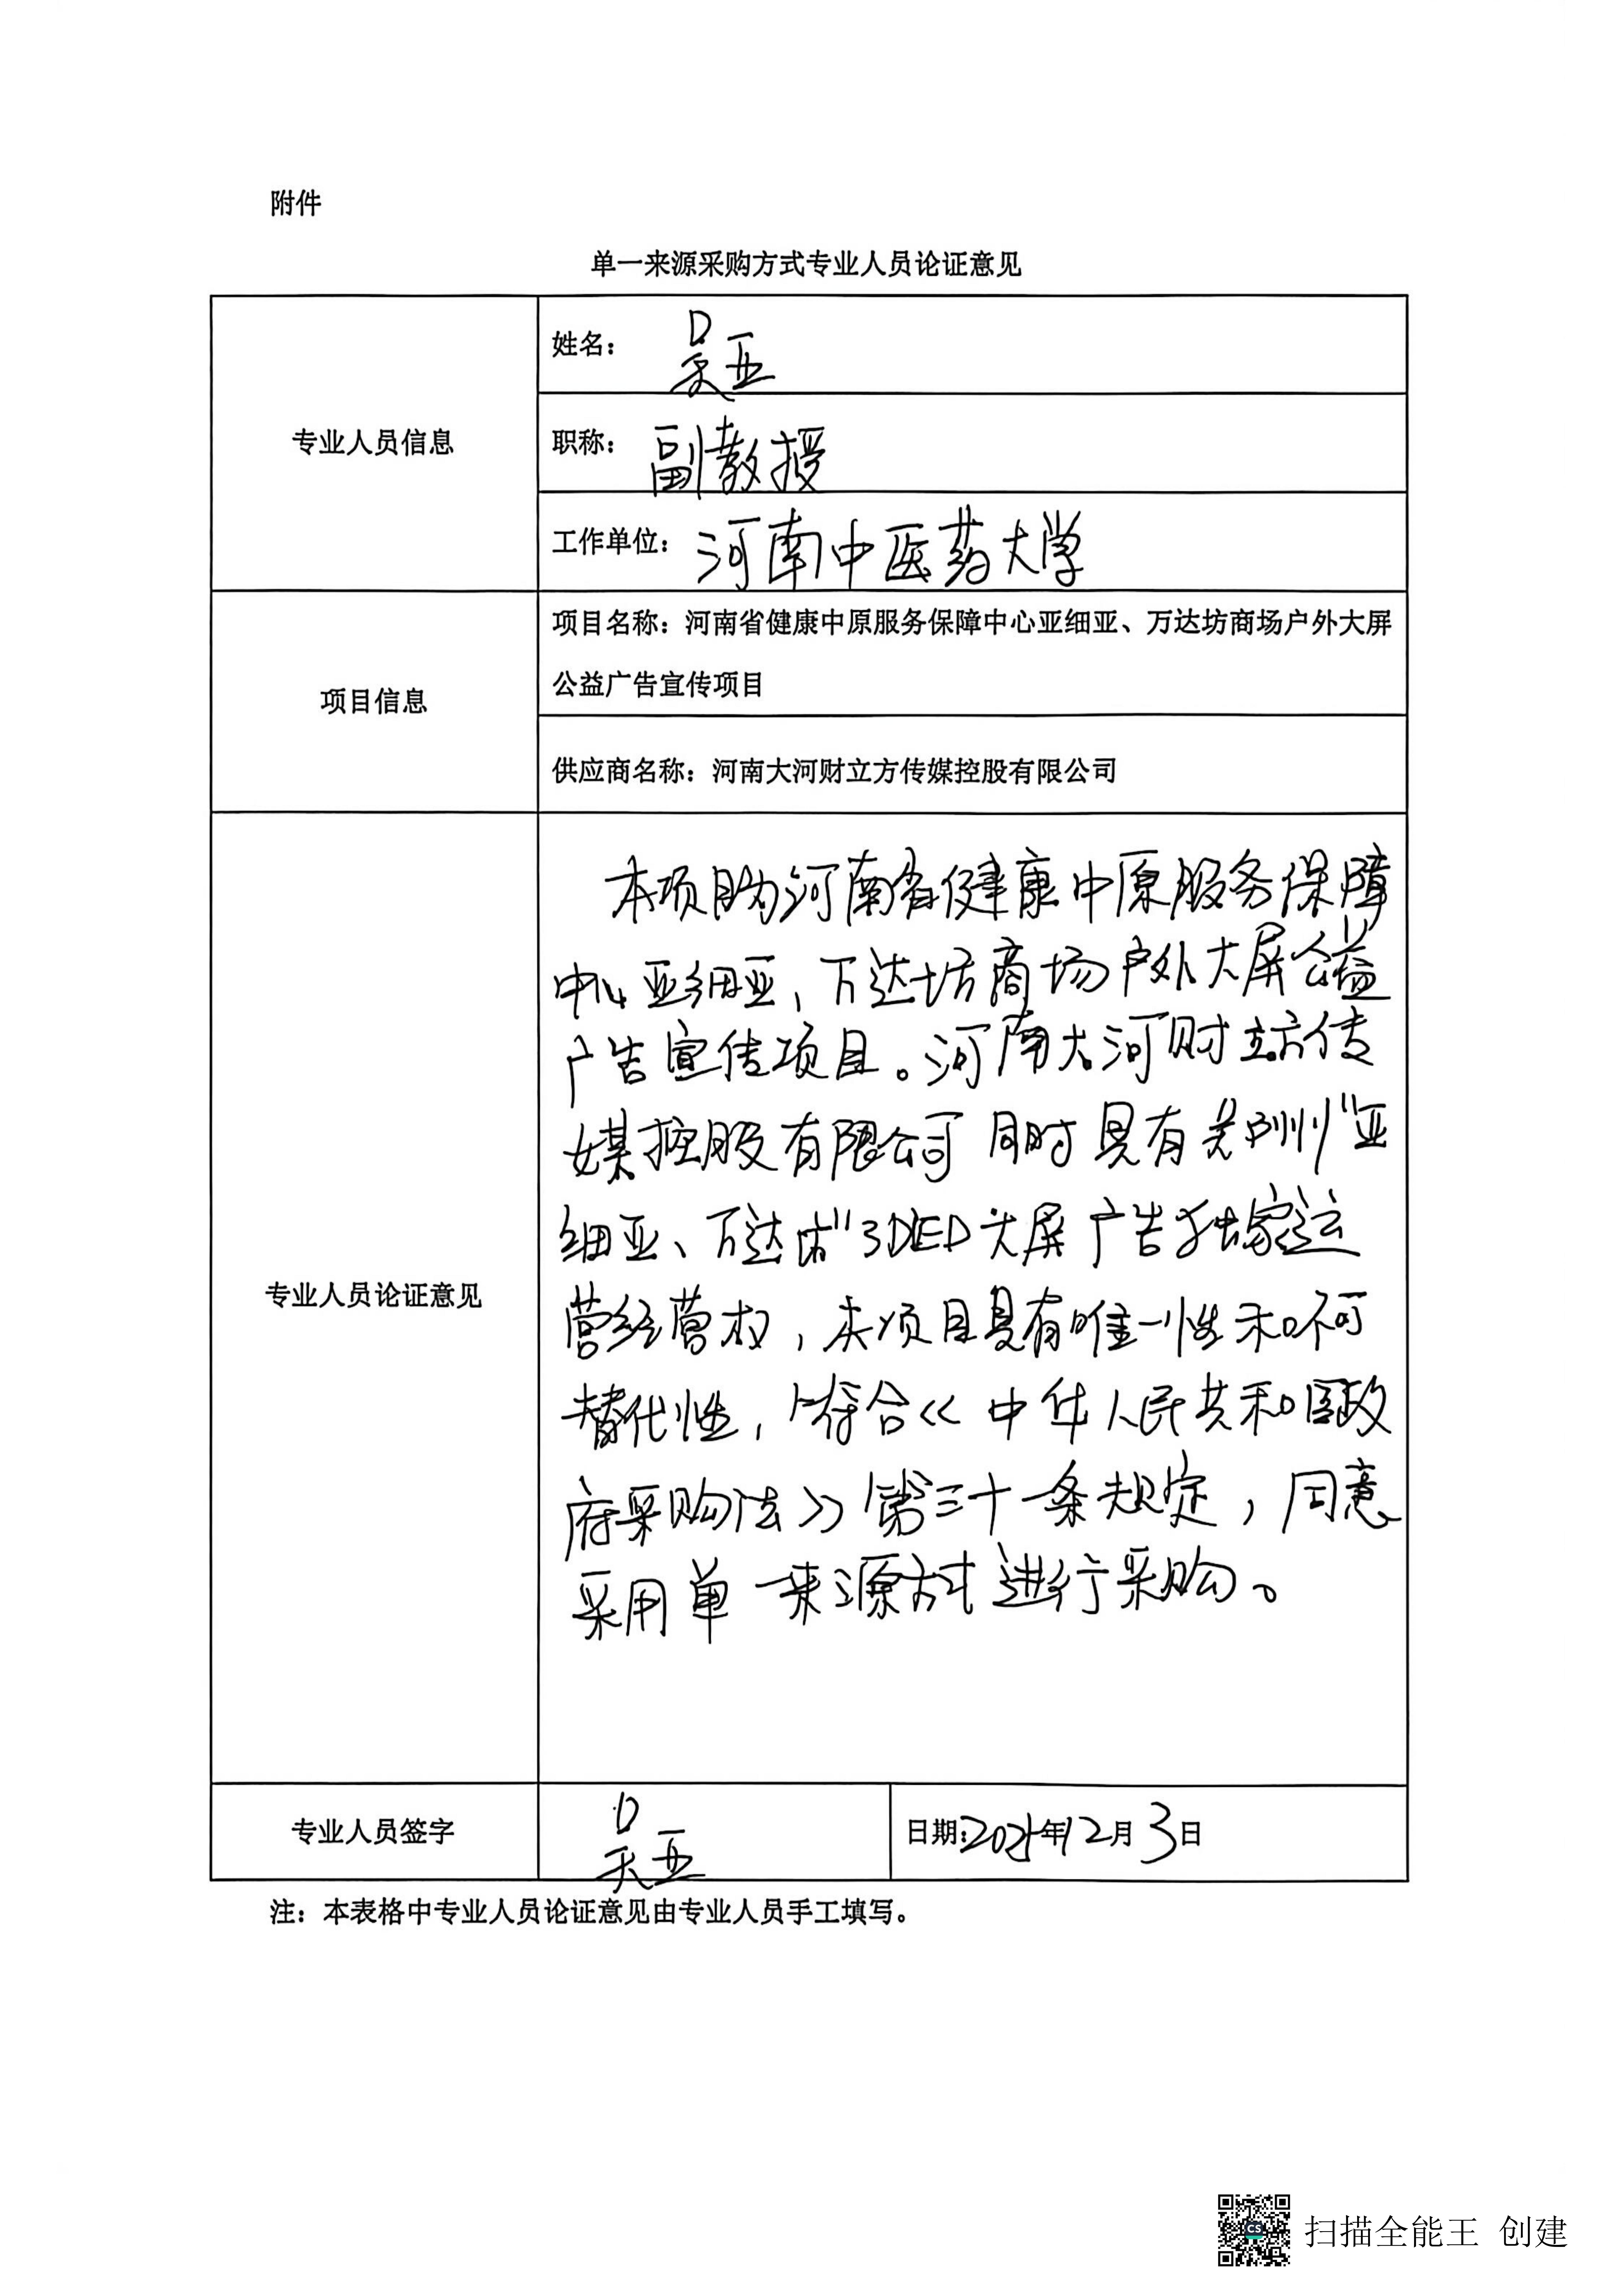 附件
单一来源采购方式专业人员论证意见
专业人员信息
姓名: 吴亚
职称: 副教授
工作单位: 河南中医药大学
项目信息
项目名称: 河南省健康中原服务保障中心亚细亚、万达坊商场户外大屏
公益广告宣传项目
供应商名称: 河南大河财立方传媒控股有限公司
专业人员论证意见
本项目为河南省健康中原服务保障
中心亚细亚,万达坊商场户外大屏公益
广告宣传项目。河南大河财立方传
媒控股有限公司同时具有郑州“亚
细亚、万达坊”3DLED大屏广告独家运
营经营权,本项目具有唯一性和不可
替代性,符合《中华人民共和国政
府采购法》第三十一条规定,同意
采用单一来源方式进行采购。
专业人员签字
吴亚
日期:年12月3日
注: 本表格中专业人员论证意见由专业人员手工填写。
CS
扫描全能王 创建